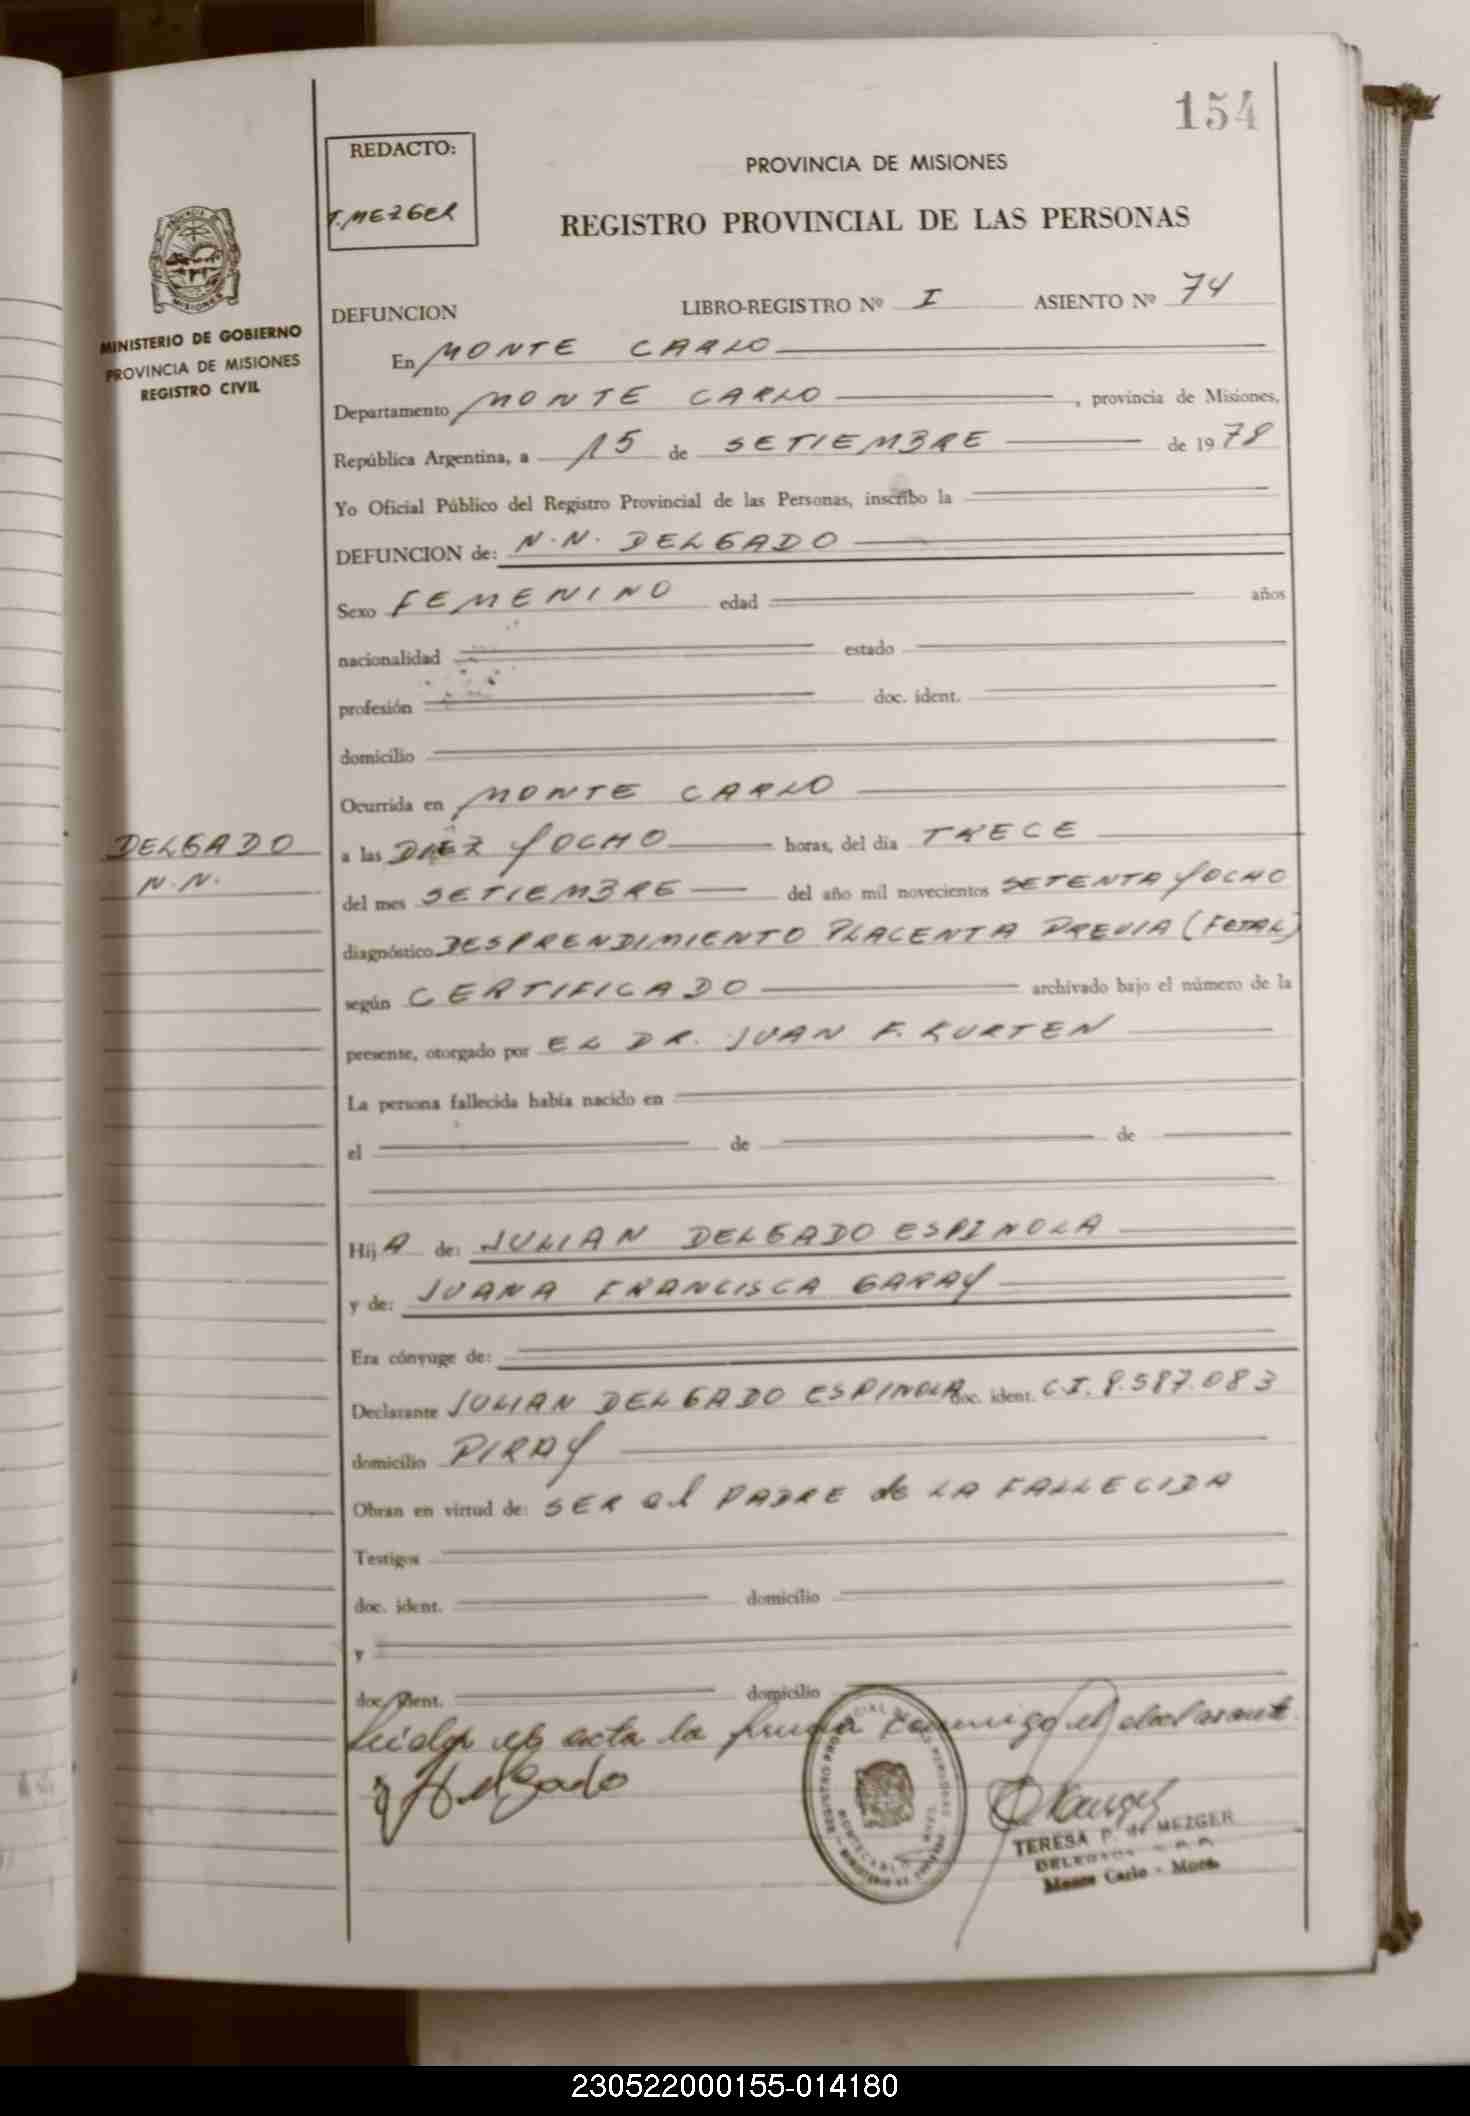 154
REDACTO:
T. MEZGER
PROVINCIA DE MISIONES
REGISTRO PROVINCIAL DE LAS PERSONAS
MISIONES
MINISTERIO DE GOBIERNO
PROVINCIA DE MISIONES
REGISTRO CIVIL
DEFUNCION LIBRO-REGISTRO Nº I ASIENTO Nº 74
En MONTE CARLO
Departamento MONTE CARLO , provincia de Misiones,
República Argentina, a 15 de SETIEMBRE de 1978
Yo Oficial Público del Registro Provincial de las Personas, inscribo la
DEFUNCION de: N.N. DELGADO
Sexo FEMENINO edad años
nacionalidad estado
profesión doc. ident.
domicilio
Ocurrida en MONTE CARLO
DELGADO
N.N.
a las DIEZ Y OCHO horas, del día TRECE
del mes SETIEMBRE del año mil novecientos SETENTA Y OCHO
diagnóstico DESPRENDIMIENTO PLACENTA PREVIA (FETAL)
según CERTIFICADO archivado bajo el número de la
presente, otorgado por EL DR. JUAN F. KURTEN
La persona fallecida había nacido en
el de de
Hij A de: JULIAN DELGADO ESPINOLA
y de: JUANA FRANCISCA GARAY
Era cónyuge de:
Declarante JULIAN DELGADO ESPINOLA doc. ident. C.I. 8.587.083
domicilio PIRAY
Obran en virtud de: SER el PADRE de LA FALLECIDA
Testigos
doc. ident. domicilio
y
doc. ident. domicilio
Leida el acta la firma conmigo el declarante.
Delgado
TERESA P. de MEZGER
Monte Carlo - Mnes.
230522000155-014180